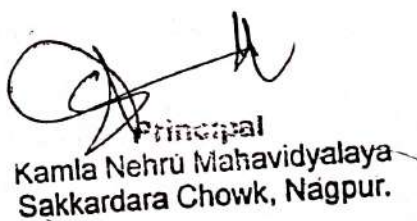 Principal
Kamla Nehru Mahavidyalaya
Sakkardara Chowk, Nagpur.